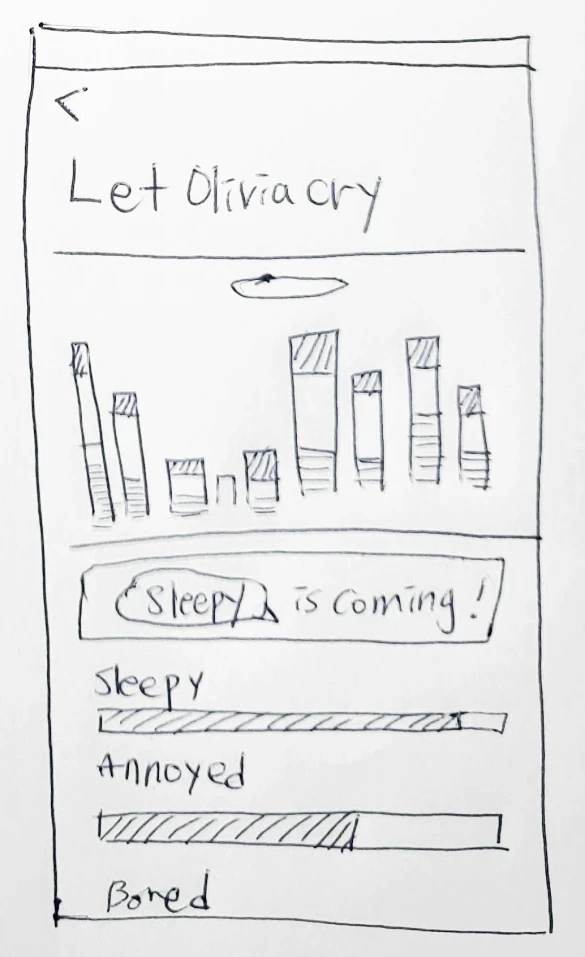 <
Let Olivia cry
Sleepy is coming!
Sleepy
Annoyed
Bored